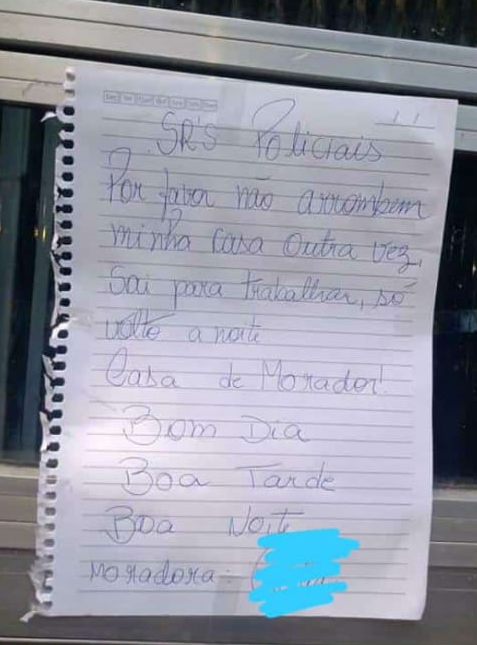 SR'S Policiais
Por favor não arrombem
minha casa outra vez,
Sai para trabalhar, só
volto a noite
Casa de Morador!
Bom Dia
Boa Tarde
Boa Noite
Moradora: